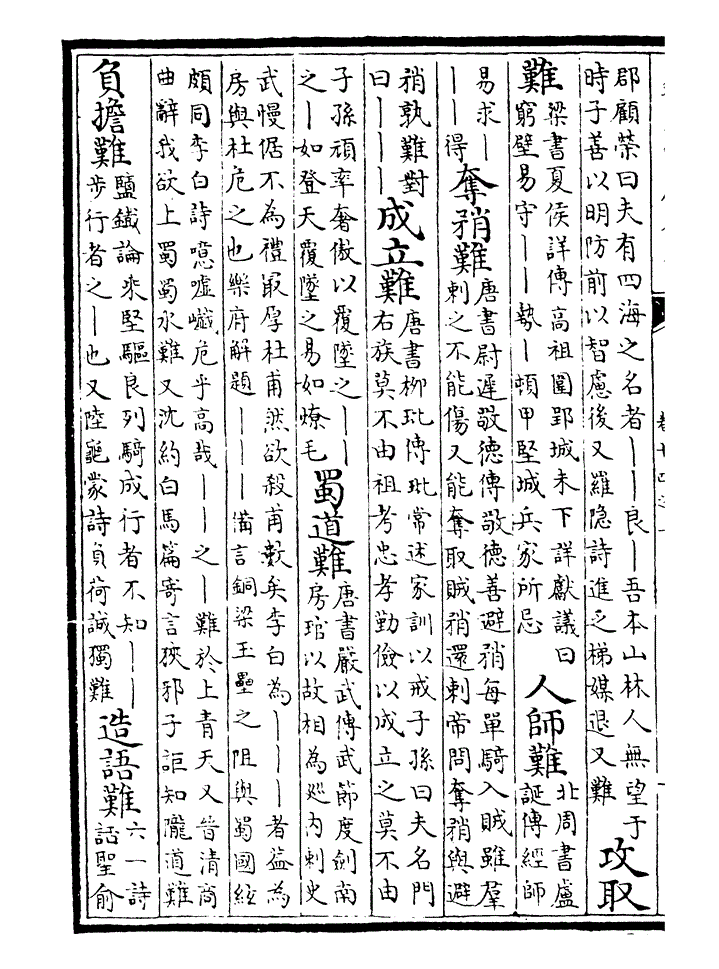 郡顧榮曰夫有四海之名者｜｜良｜吾本山林人無望于
時子善以明防前以智慮後又羅隐詩進乏梯媒退又難
攻取
難
梁書夏侯詳傳高祖圍郢城未下詳獻議曰
窮壁易守｜｜勢｜頓甲堅城兵家所忌
人師難
北周書盧
誕傳經師
易求｜
｜｜得
奪矟難
唐書尉遲敬德傳敬德善避矟每單騎入賊雖羣
刺之不能傷又能奪取賊矟還刺帝問奪矟與避
矟孰難對
曰｜｜｜
成立難
唐書柳玭傳玭常述家訓以戒子孫曰夫名門
右族莫不由祖考忠孝勤儉以成立之莫不由
子孫頑率奢傲以覆墜之｜｜
之｜如登天覆墜之易如燎毛
蜀道難
唐書嚴武傳武節度劍南
房琯以故相為廵内刺史
武慢倨不為禮冣厚杜甫然欲殺甫數矣李白為｜｜｜者葢為
房與杜危之也樂府解題｜｜｜備言銅梁玉壘之阻與蜀國絃
頗同李白詩噫嘘巇危乎高哉｜｜之｜難於上青天又晉清商
曲辭我欲上蜀蜀水難又沈約白馬篇寄言狹邪子詎知隴道難
負擔難
鹽鐵論乘堅驅良列騎成行者不知｜｜
步行者之｜也又陸龜蒙詩負荷誠獨難
造語難
六一詩
話聖俞